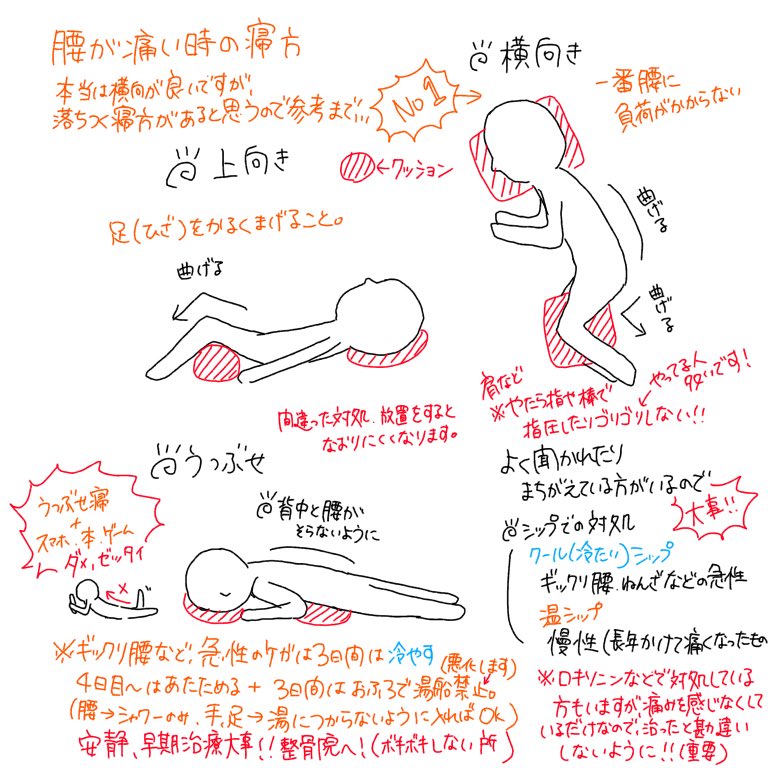 腰が痛い時の寝方
本当は横向が良いですが、
落ちつく寝方があると思うので参考まで、、、
No1
横向き
一番腰に
負荷がかからない
曲げる
曲げる
上向き
←クッション
足(ひざ)をかるくまげること。
曲げる
間違った対処、放置をすると
なおりにくくなります。
肩など
※やたら指や棒で
指圧したりゴリゴリしない!!
やってる人
多いです!
うつぶせ
うつぶせ寝
+
スマホ、本、ゲーム
ダメ、ゼッタイ
×
背中と腰が
そらないように
よく聞かれたり
まちがえている方がいるので
大事!!
シップでの対処
クール(冷たい)シップ
ギックリ腰、ねんざなどの急性
温シップ
慢性(長年かけて痛くなったもの
※ギックリ腰など、急性のケガは3日間は冷やす
(悪化します)
4日目〜はあたためる + 3日間はおふろで湯船禁止。
(腰→シャワーのみ、手、足→湯につからないように入ればOK)
安静、早期治療大事!!整骨院へ!(ボキボキしない所)
※ロキソニンなどで対処している
方もいますが痛みを感じなくして
いるだけなので、治ったと勘違い
しないように!!(重要)